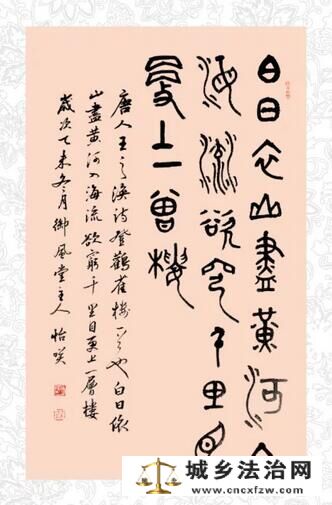 白日依山盡黃河入
海流欲窮千里目
更上一層樓
唐人王之渙詩登鸛雀樓一首也白日依
山盡黃河入海流欲窮千里目更上一層樓
歲次乙未冬月御風堂主人 怡咲
城乡法治网
www.cncxfzw.com